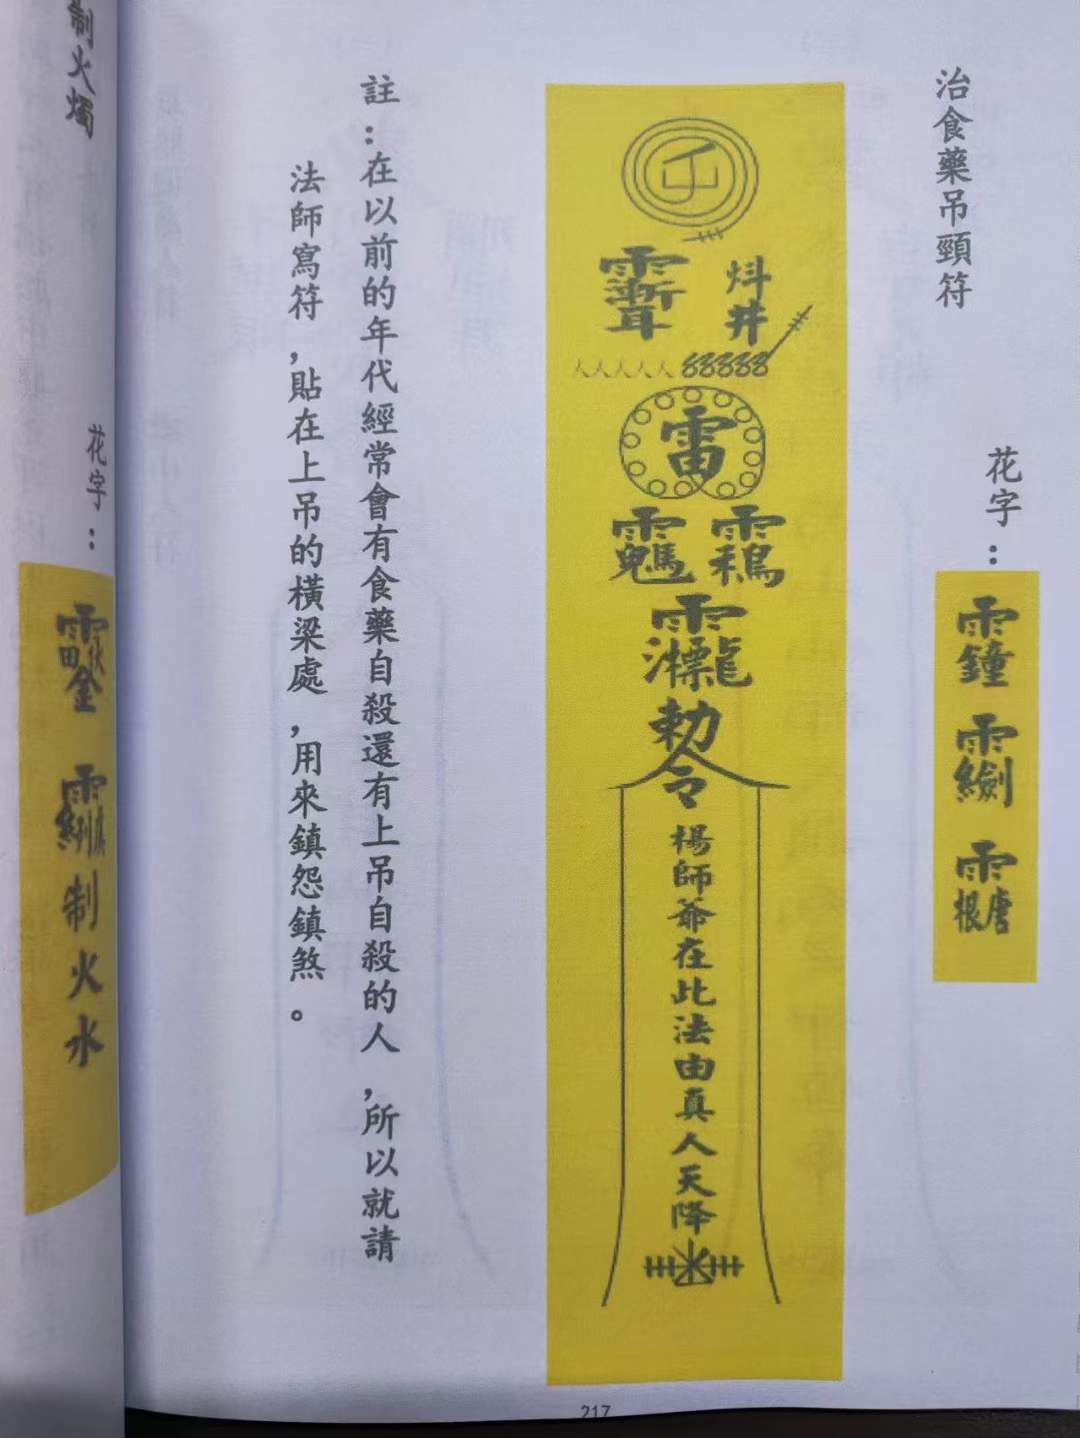 治食藥吊頸符
花字：
雷
勅令
楊師爺在此法由真人天降
註：在以前的年代經常會有食藥自殺還有上吊自殺的人，所以就請
法師寫符，貼在上吊的橫梁處，用來鎮怨鎮煞。
217
制火燭
花字：
制火水